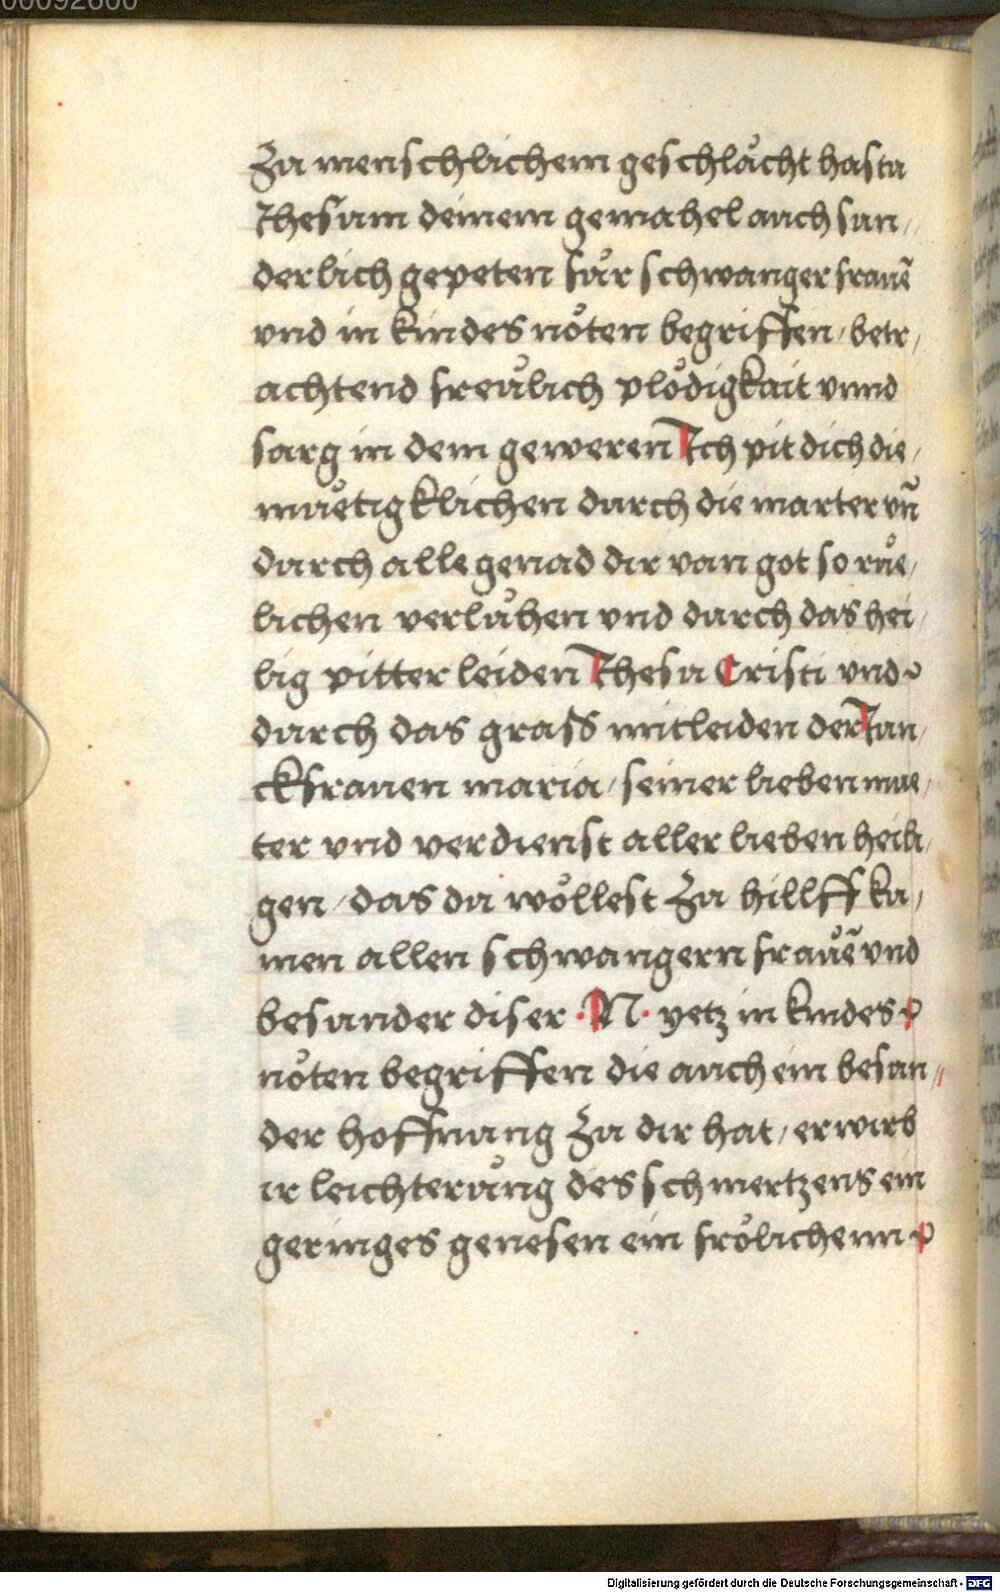 00092600
Zu menschlichem geschlächt hastu
Jhesum deinem gemahel auch sun,,
derlich gepeten für schwanger frauē
vnd in kindes nöten begriffen / betr,
achtend freülich plödigkait vnnd
sorg in dem geweren Ich pit dich die,
müetigklichen durch die marter vn̄
durch alle genad dir van got so rüe,
lichen verlühen vnd durch das hei,
lig pitter leiden Jhesu Cristi vnd
durch das gross mitleiden der Jun,
ckfrauen maria / seiner lieben mue,
ter vnd verdienst aller lieben heili,
gen / das du wöllest Zu hillff ku,
men allen schwangern fraůē vnd
besunder diser · N · yetz in kindes
nöten begriffen die auch ein besun,,
der hoffnung Zu dir hat / erwirb
ir leichterüng des schmertzens ein
geringes genesen ein frölichenn
Digitalisierung gefördert durch die Deutsche Forschungsgemeinschaft - DFG